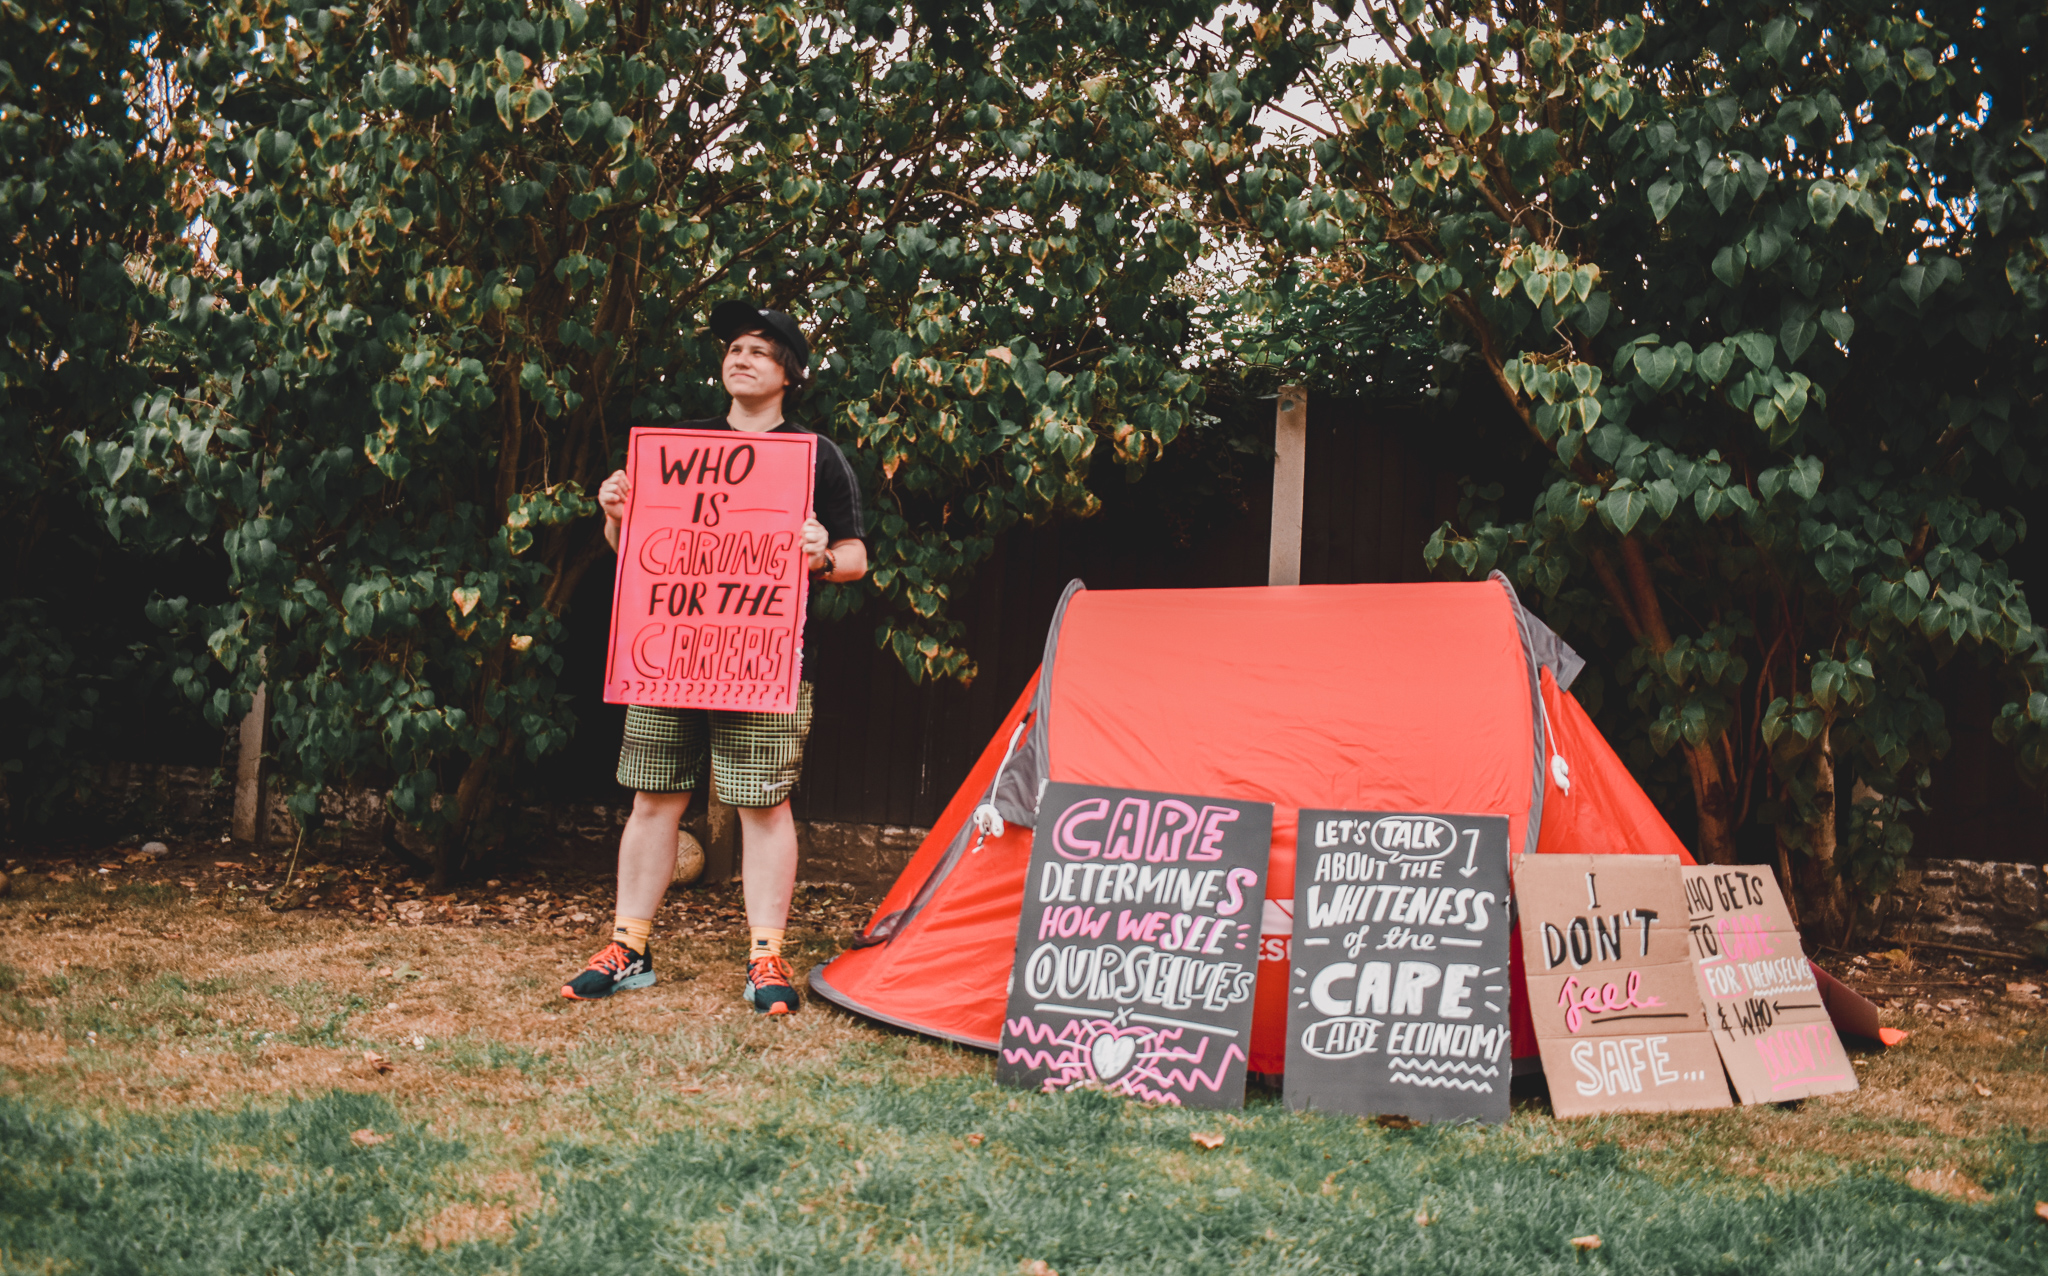 WHO
IS
CARING
FOR THE
CARERS
? ? ? ? ? ? ? ? ? ? ? ? ?
CARE
DETERMINES
HOW WE SEE
OURSELVES
LET'S TALK
ABOUT THE
WHITENESS
of the
CARE
CARE ECONOMY
I
DON'T
feel
SAFE...
WHO GETS
TO CARE
FOR THEMSELVES
& WHO
DOESN'T?